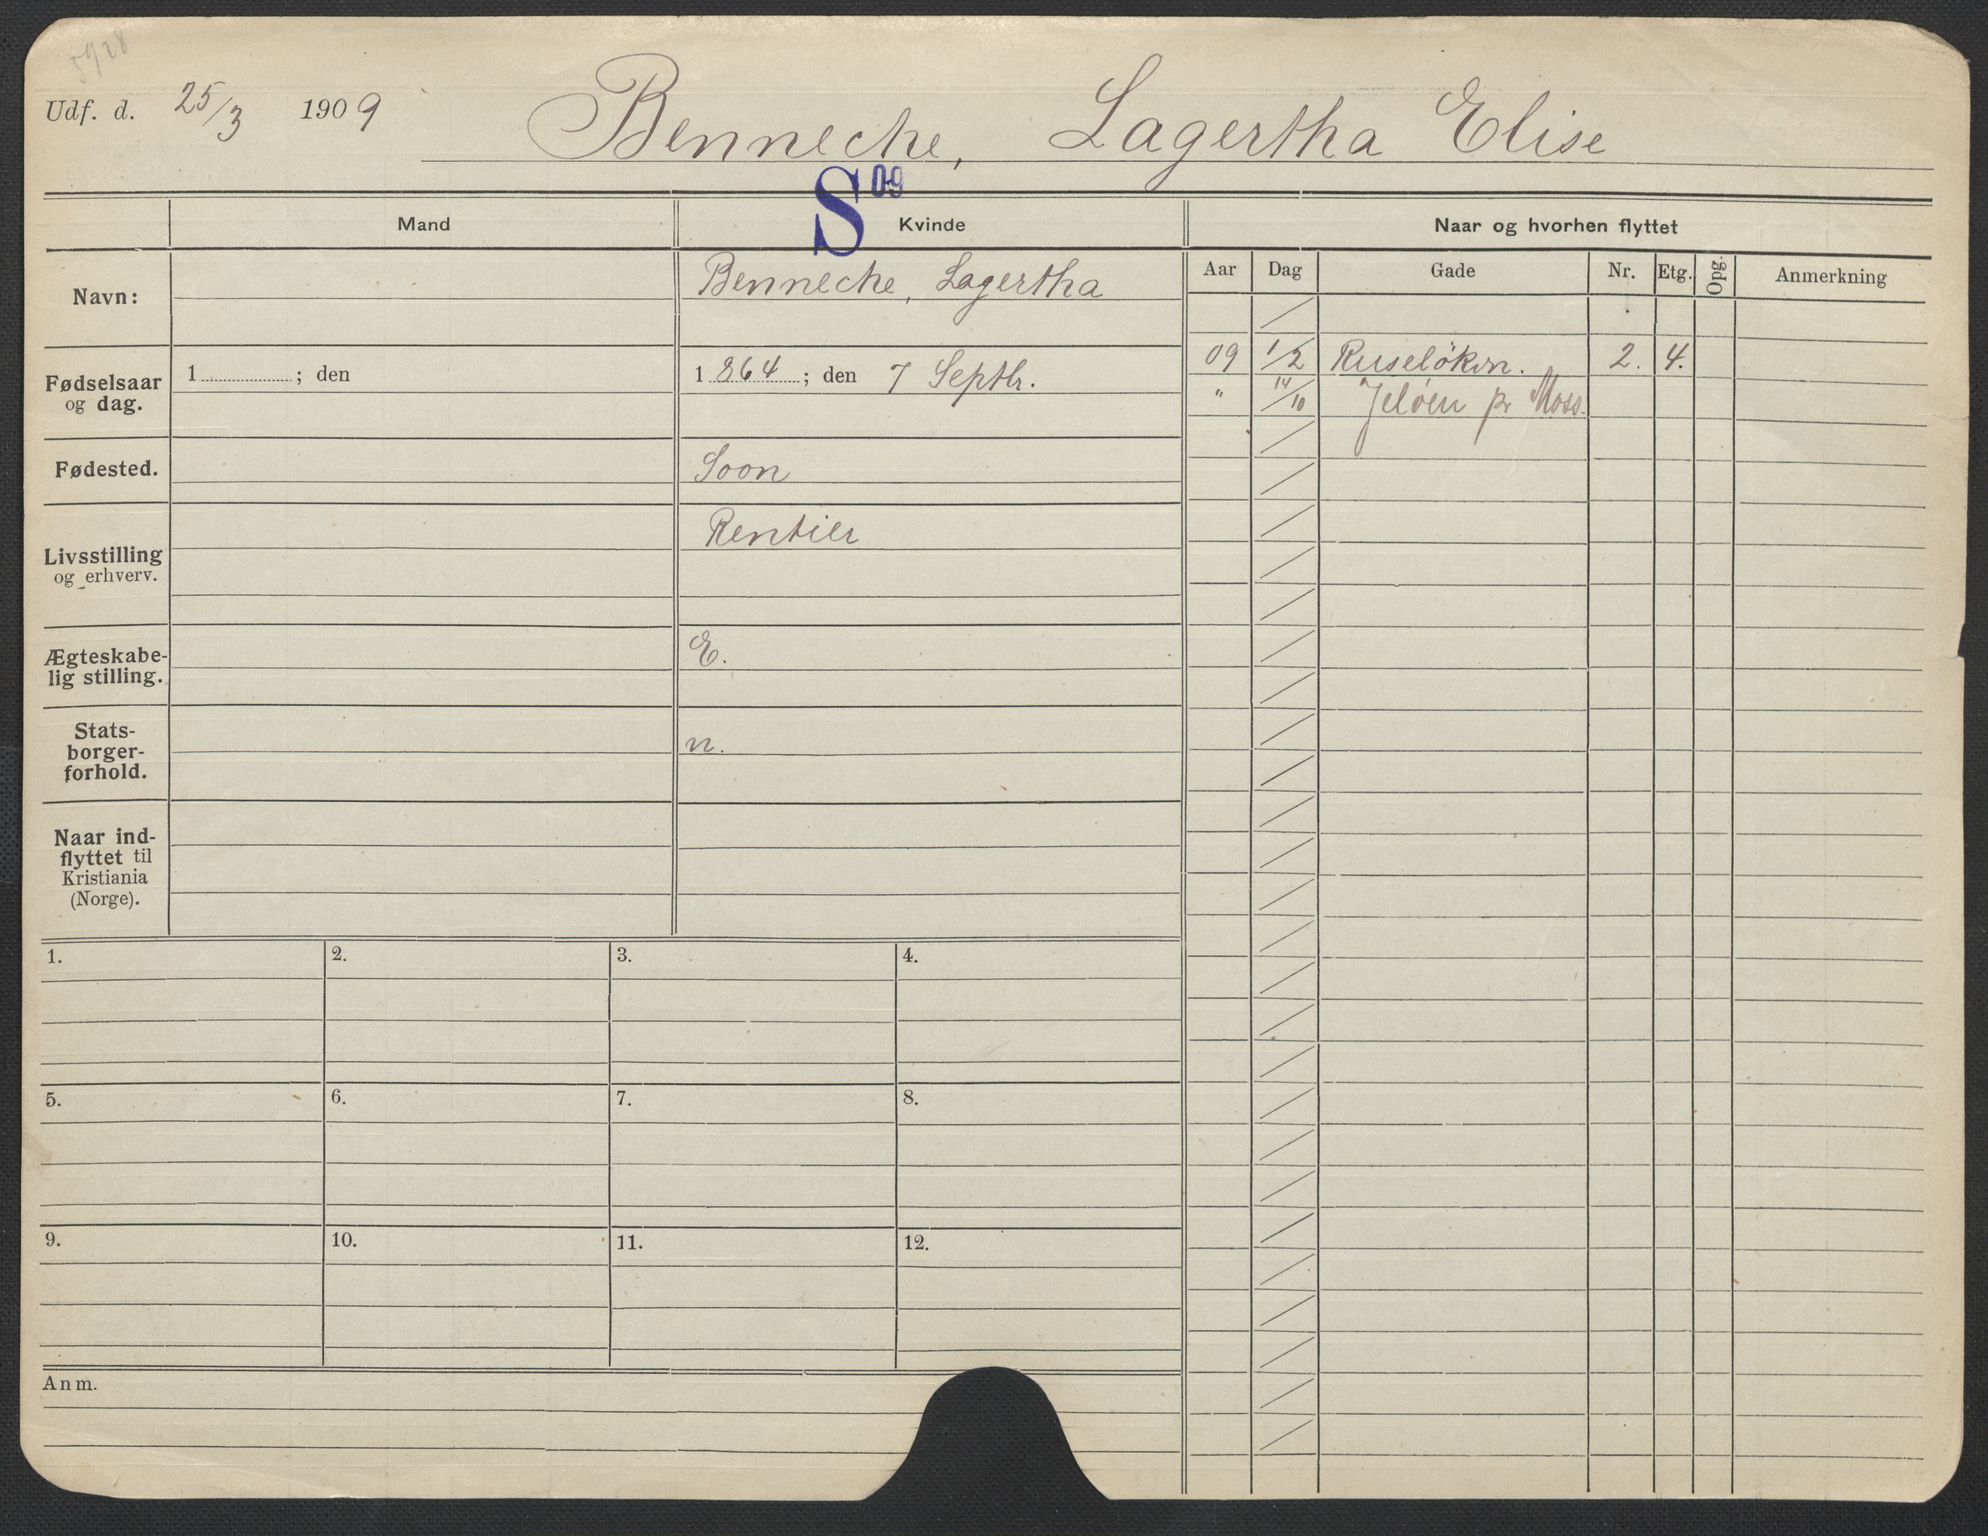 5928
Udf. d. 25/3 1909 Bennecke, Lagertha Elise
S 09
Mand Kvinde Naar og hvorhen flyttet
Aar Dag Gade Nr. Etg. Opg. Anmerkning
Navn: Bennecke, Lagertha
09 1/2 Ruseløkvn. 2. 4.
Fødselsaar
og dag.
1 ; den
1 864 ; den 7 Septbr.
" 14/10 Jeløen pr Moss.
Fødested. Soon
Livsstilling
og erhverv.
Rentier
Ægteskabe-
lig stilling.
E.
Stats-
borger-
forhold.
n.
Naar ind-
flyttet til
Kristiania
(Norge).
1. 2. 3. 4.
5. 6. 7. 8.
9. 10. 11. 12.
Anm.